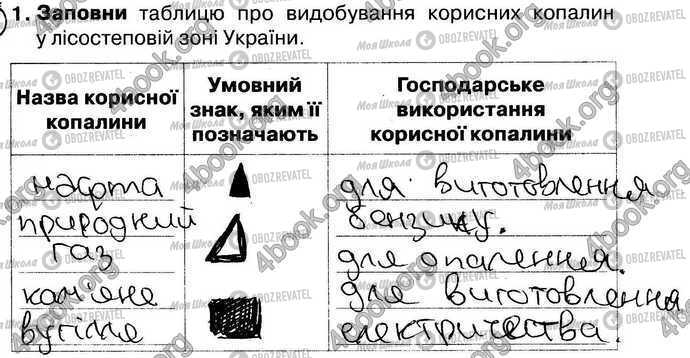 1. Заповни таблицю про видобування корисних копалин
у лісостеповій зоні України.
Назва корисної копалини
Умовний знак, яким її позначають
Господарське використання корисної копалини
нафта
для виготовлення
природний
бензину.
газ
для опалення.
кам'яне
для виготовлення
вугілля
електричества
4book.org
Моя Школа
OBOZREVATEL